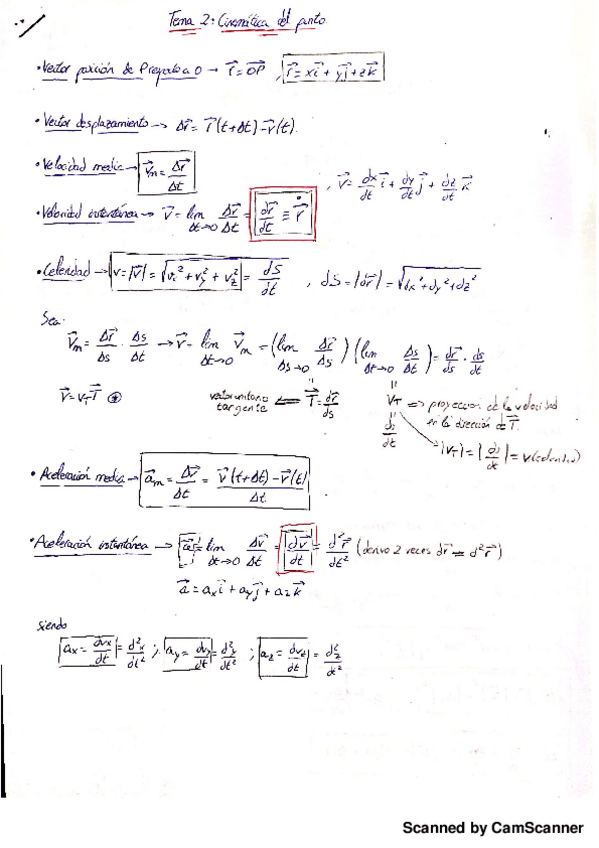 Tema 2: Cinemática del punto
• Vector posición de P respecto a O → r⃗ = OP⃗ , r⃗ = xi⃗ + yj⃗ + zk⃗
• Vector desplazamiento → Δr⃗ = r⃗(t+Δt) - r⃗(t).
• Velocidad media → v⃗m = Δr⃗/Δt
, v⃗ = dx/dt i⃗ + dy/dt j⃗ + dz/dt k⃗
• Velocidad instantánea → v⃗ = lim Δt→0 Δr⃗/Δt = dr⃗/dt ≡ ṙ⃗
• Celeridad → v = |v⃗| = √(vx² + vy² + vz²) = dS/dt , dS = |dr⃗| = √(dx² + dy² + dz²)
Sea:
v⃗m = Δr⃗/Δs · Δs/Δt → v⃗ = lim Δt→0 v⃗m = (lim Δs→0 Δr⃗/Δs) (lim Δt→0 Δs/Δt) = dr⃗/ds · ds/dt
v⃗ = vT T⃗ vector unitario tangente ⇐ T⃗ = dr⃗/ds
vT ⇒ proyección de la velocidad
en la dirección de T⃗.
ds/dt
|vT| = |ds/dt| = v (celeridad)
• Aceleración media → a⃗m = Δv⃗/Δt = v⃗(t+Δt) - v⃗(t)/Δt
• Aceleración instantánea → a⃗ = lim Δt→0 Δv⃗/Δt = dv⃗/dt = d²r⃗/dt² (derivo 2 veces dr⃗ = d²r⃗)
a⃗ = ax i⃗ + ay j⃗ + az k⃗
siendo
ax = dvx/dt = d²x/dt² ; ay = dvy/dt = d²y/dt² ; az = dvz/dt = d²z/dt²
Scanned by CamScanner